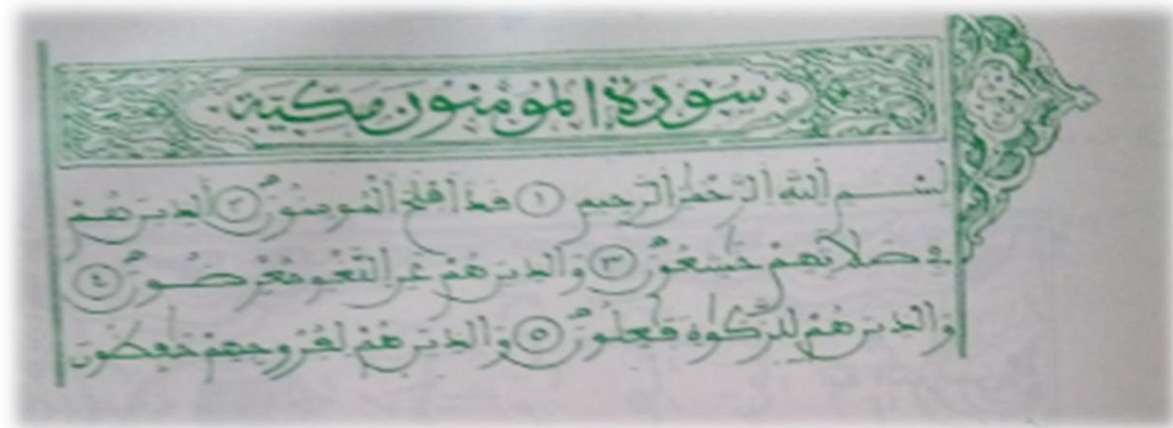 سورة المؤمنون مكية
بسم الله الرحمن الرحيم ١ قد أفلح المومنون ٢ الذين هم
في صلاتهم خشعون ٣ والذين هم عن اللغو معرضون ٤
والذين هم للزكوة فعلون ٥ والذين هم لفروجهم حفظون